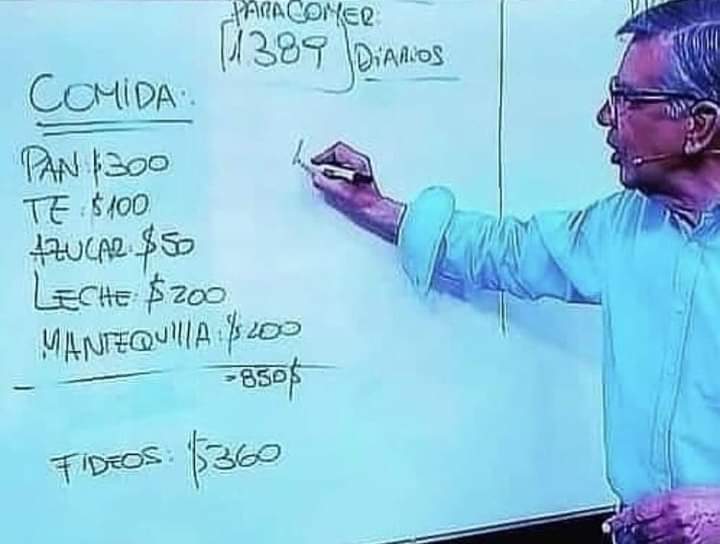 PARA COMER:
[1389] DIARIOS
COMIDA:
PAN: $300
TE: $100
AZUCAR: $50
LECHE: $200
MANTEQUIllA: $200
-850$
FIDEOS: $360